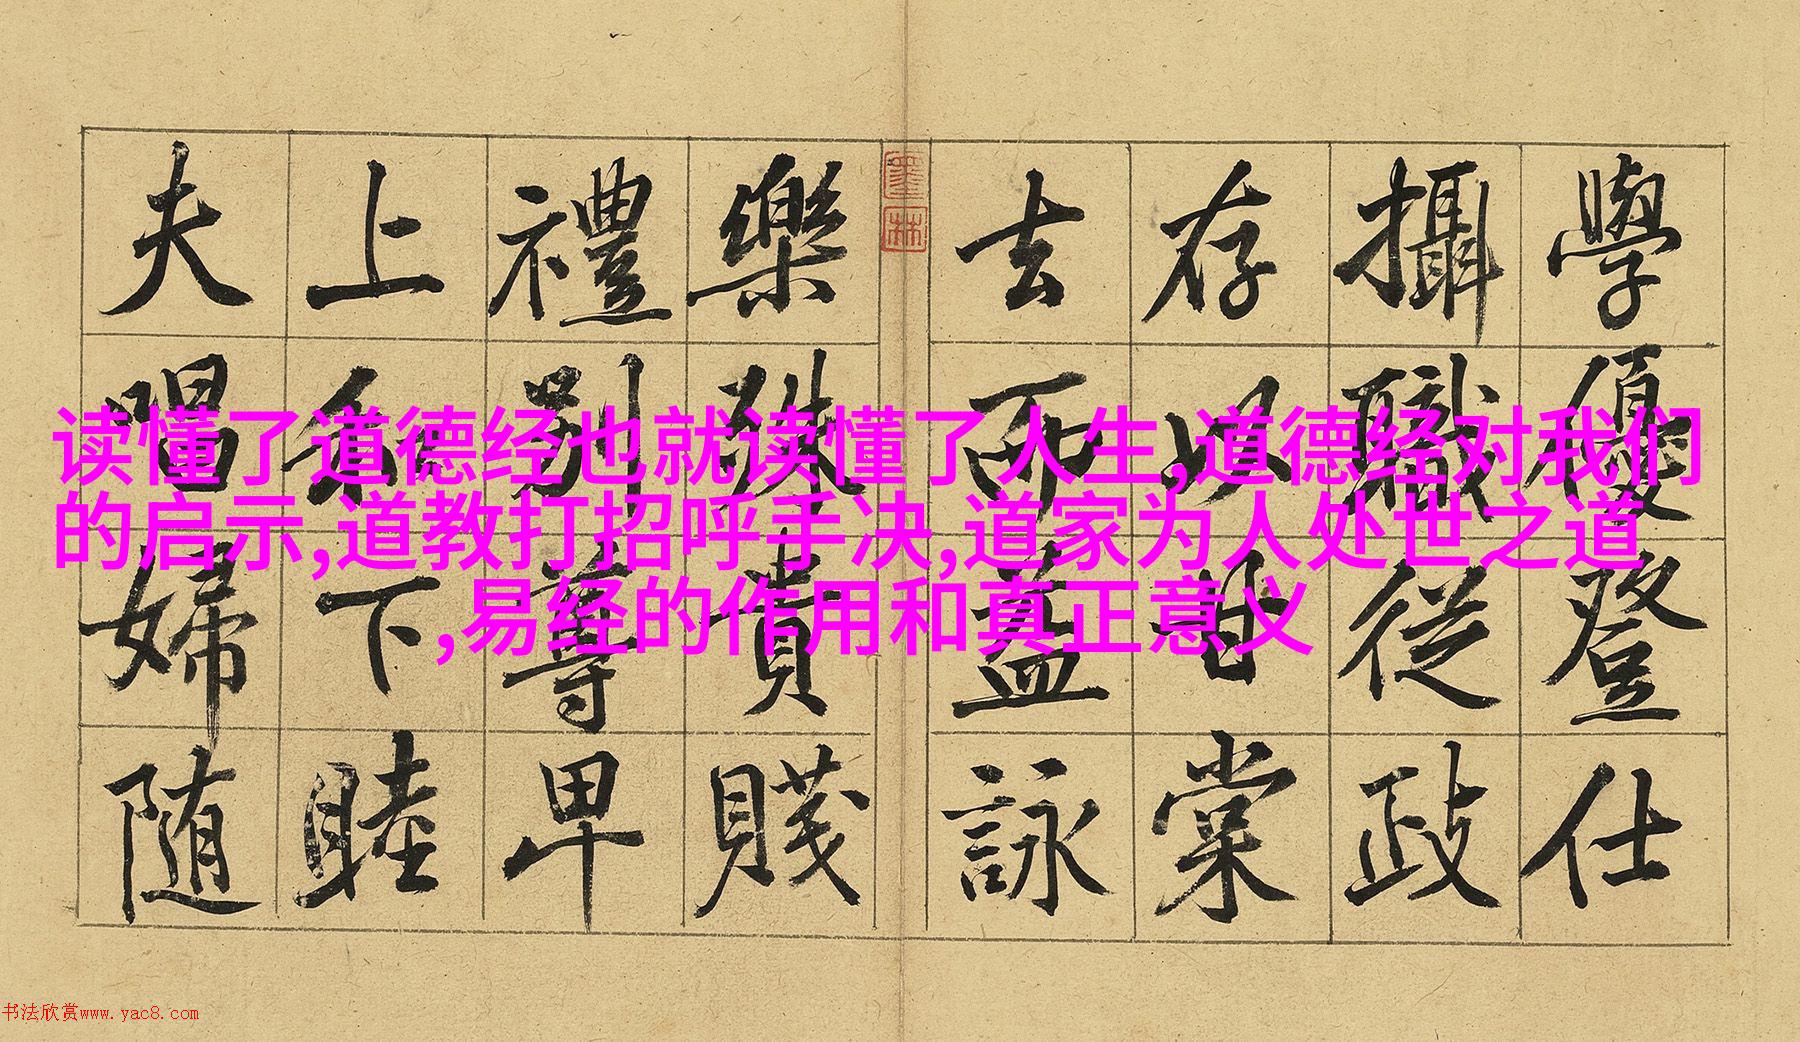 學優登仕
攝職從政
存以甘棠
去而益詠
墨林
樂殊貴賤
禮別尊卑
上和下睦
夫唱婦随
读懂了道德经也就读懂了人生,道德经对我们
的启示,道教打招呼手决,道家为人处世之道
,易经的作用和真正意义
书法欣赏www.yac8.com